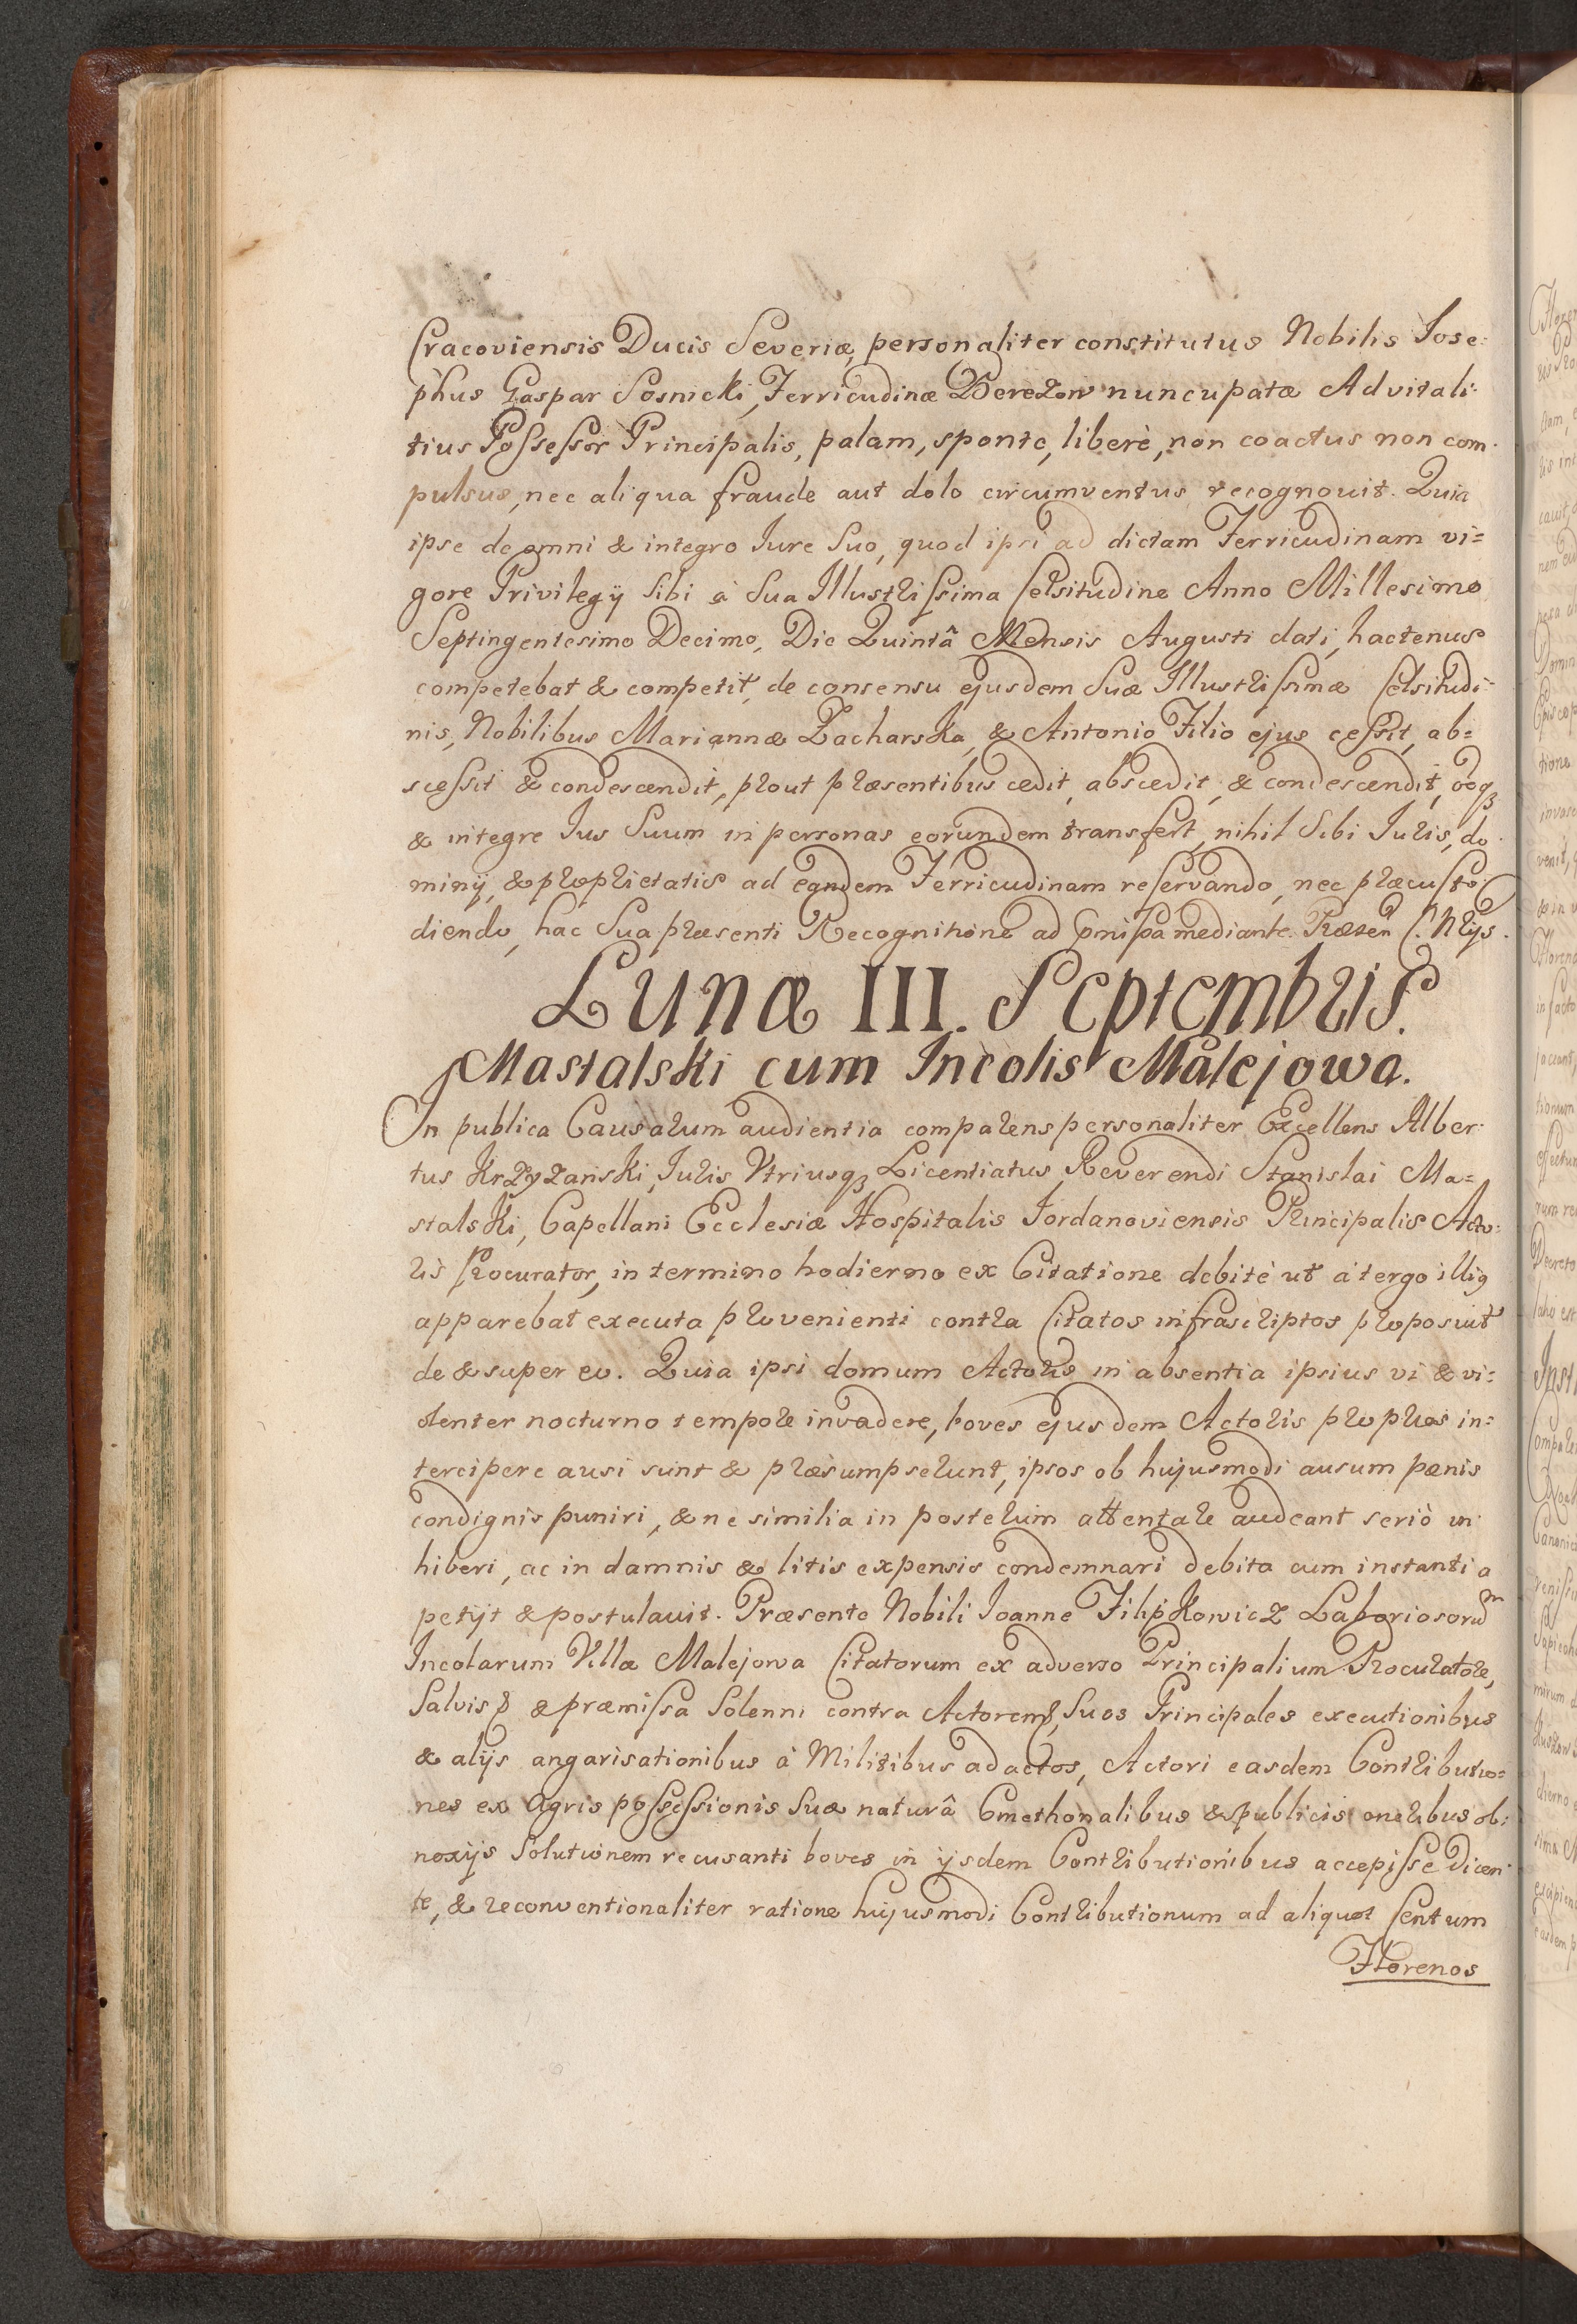 Cracoviensis Ducis Severiæ, personaliter constitutus Nobilis Jose:
phus Gaspar Sosnicki, Ferricudinæ Berezow nuncupatæ Advitali:
tius Possessor Principalis, palam, sponte, liberè, non coactus non com:
pulsus, nec aliqua fraude aut dolo circumventus recognovit. Quia
ipse de omni & integro Jure Suo, quod ipsi ad dictam Ferricudinam vi=
gore Privilegÿ Sibi à Sua Illustrissima Celsitudine Anno Millesimo
Septingentesimo Decimo, Die Quintâ Mensis Augusti dati, hactenus
competebat & competit, de consensu ejusdem Suæ Illustrissimæ Celsitudi=
nis, Nobilibus Mariannæ Zacharska, & Antonio Filio ejus cessit, ab=
scessit & condescendit, prout præsentibus cedit, abscedit, & condescendit,
& integre Jus Suum in personas eorundem transfert, nihil Sibi Juris, do:
minÿ, & proprietatis ad eandem Ferricudinam reservando, nec præcusto:
diendo, hac Sua præsenti Recognitione ad præmissa mediante. Præsen
Lunæ III. Septembris.
Mastalski cum Incolis Malejowa.
In publica Causarum audientia comparens personaliter Excellens Alber:
tus Krzyzanski, Juris Vtriusqꝫ Licentiatus, Reverendi Stanislai Ma=
stalski, Capellani Ecclesiæ Hospitalis Jordanoviensis Principalis Acto:
ris Procurator, in termino hodierno ex Citatione debitè ut à tergo illiꝯ
apparebat executa provenienti contra Citatos infrascriptos proposuit
de & super eo. Quia ipsi domum Actoris in absentia ipsius vi & vi:
olenter nocturno tempore invadere, boves ejusdem Actoris proprios in=
tercipere ausi sunt & præsumpserunt, ipsos ob hujusmodi ausum pænis
condignis puniri, & ne similia in posterum attentare audeant seriò in:
hiberi, ac in damnis & litis expensis condemnari debita cum instantia
petÿt & postulavit. Præsente Nobili Joanne Filipkowicz Laboriosorũ
Incolarum Villæ Malejowa Citatorum ex adverso Principalium Procuratore,
Salvis & præmissa Solenni contra Actorem Suos Principales executionibus
& alÿs angarisationibus à Militibus adactos, Actori easdem Contributio=
nes ex Agris possessionis Suæ naturâ Cmethonalibus & publicis oneribus ob:
noxÿs Solutionem recusanti boves in ÿsdem Contributionibus accepisse dicen:
te, & reconventionaliter ratione hujusmodi Contributionum ad aliquot Centum
Florenos